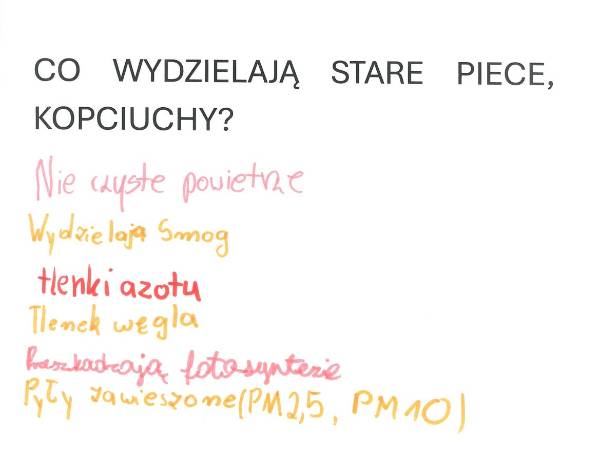 CO WYDZIELAJĄ STARE PIECE,
KOPCIUCHY?
Nie czyste powietrze
Wydzielają Smog
tlenki azotu
Tlenek węgla
Przeszkadzają fotosyntezie
Pyły zawieszone(PM2,5, PM10)